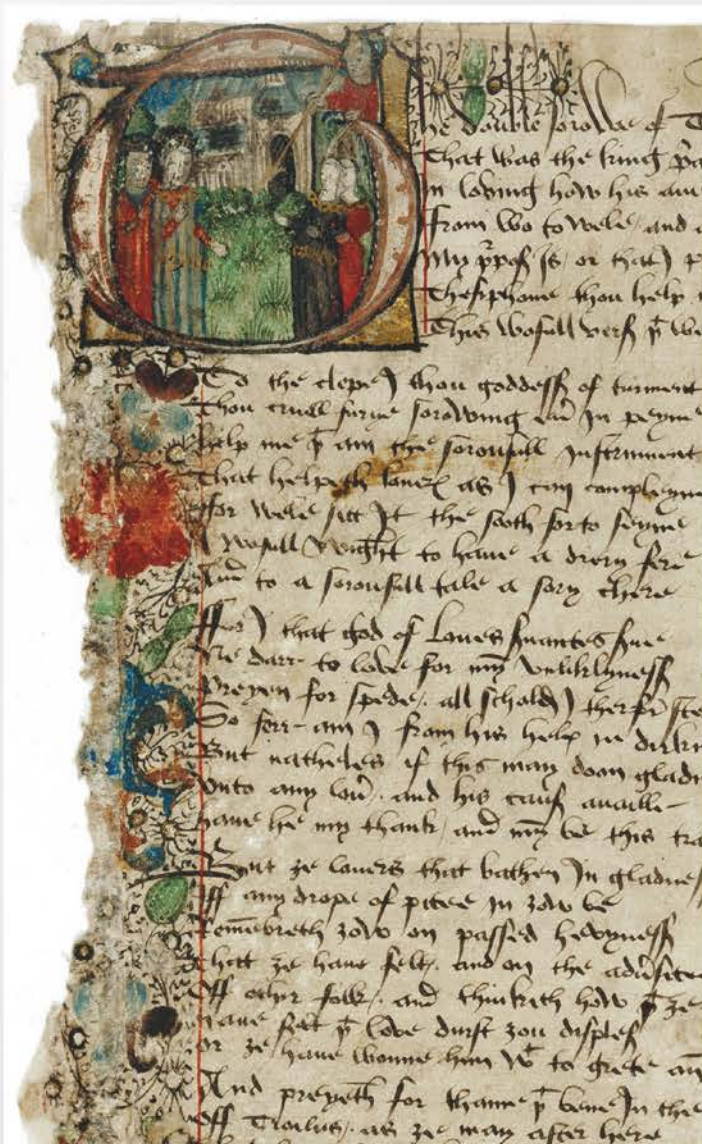 The double sorowe of T
That was the king p̄a
In loving how his aue
From wo to wele, and a
My p̄poſ Is or that) p
Thesiphone thou help
This wofull verſ þt we
To the clepe) thou goddeſſ of turment
Thou cruell furye sorowing eū In peyne
help me þt am the sorouful Instrument
That helpeth louerẜ as I can compleyne
for wele sitt It the sooth for to seyne
A Wofull Wight to have a drery fere
And to a sorouful tale a sory chere
ffor) that god of Loues seruantes serue
Ne darr to love for my vnliklyneſſ
Preyen for spede, all schold) therfr ste
So ferr am I from his help in dirkn
But natheles if this may doon gladn
Vnto any loū, and his cauſ auaille
haue he my thank, and my be this tra
But ȝe louers that bathen In gladneſ
Iff any drope of pitee in ȝow be
Remēbreth ȝow on passed hevyneſſ
thatt ȝe haue felt, and on the adūsitee
Off othyr folk, and thinkith how þt ȝe
haue felt þt love durst ȝou displeſ
Or ȝe haue wonne him wt to grete an
And preyeth for thame þt bene In the
Off Troilus, as ȝe may after here